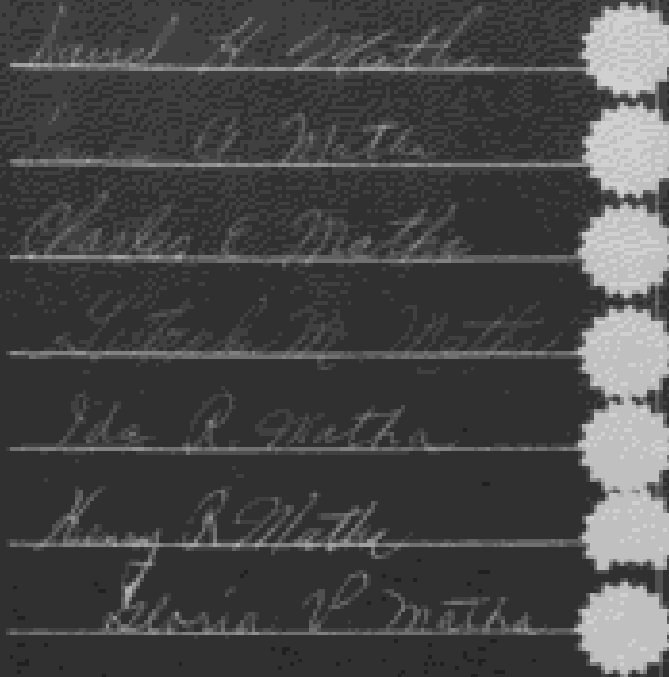 David H. Mathe
A. Matha
Charles E Mathe
M. Mathe
Ida R. Matha
Henry R Mathe
Gloria V Matha